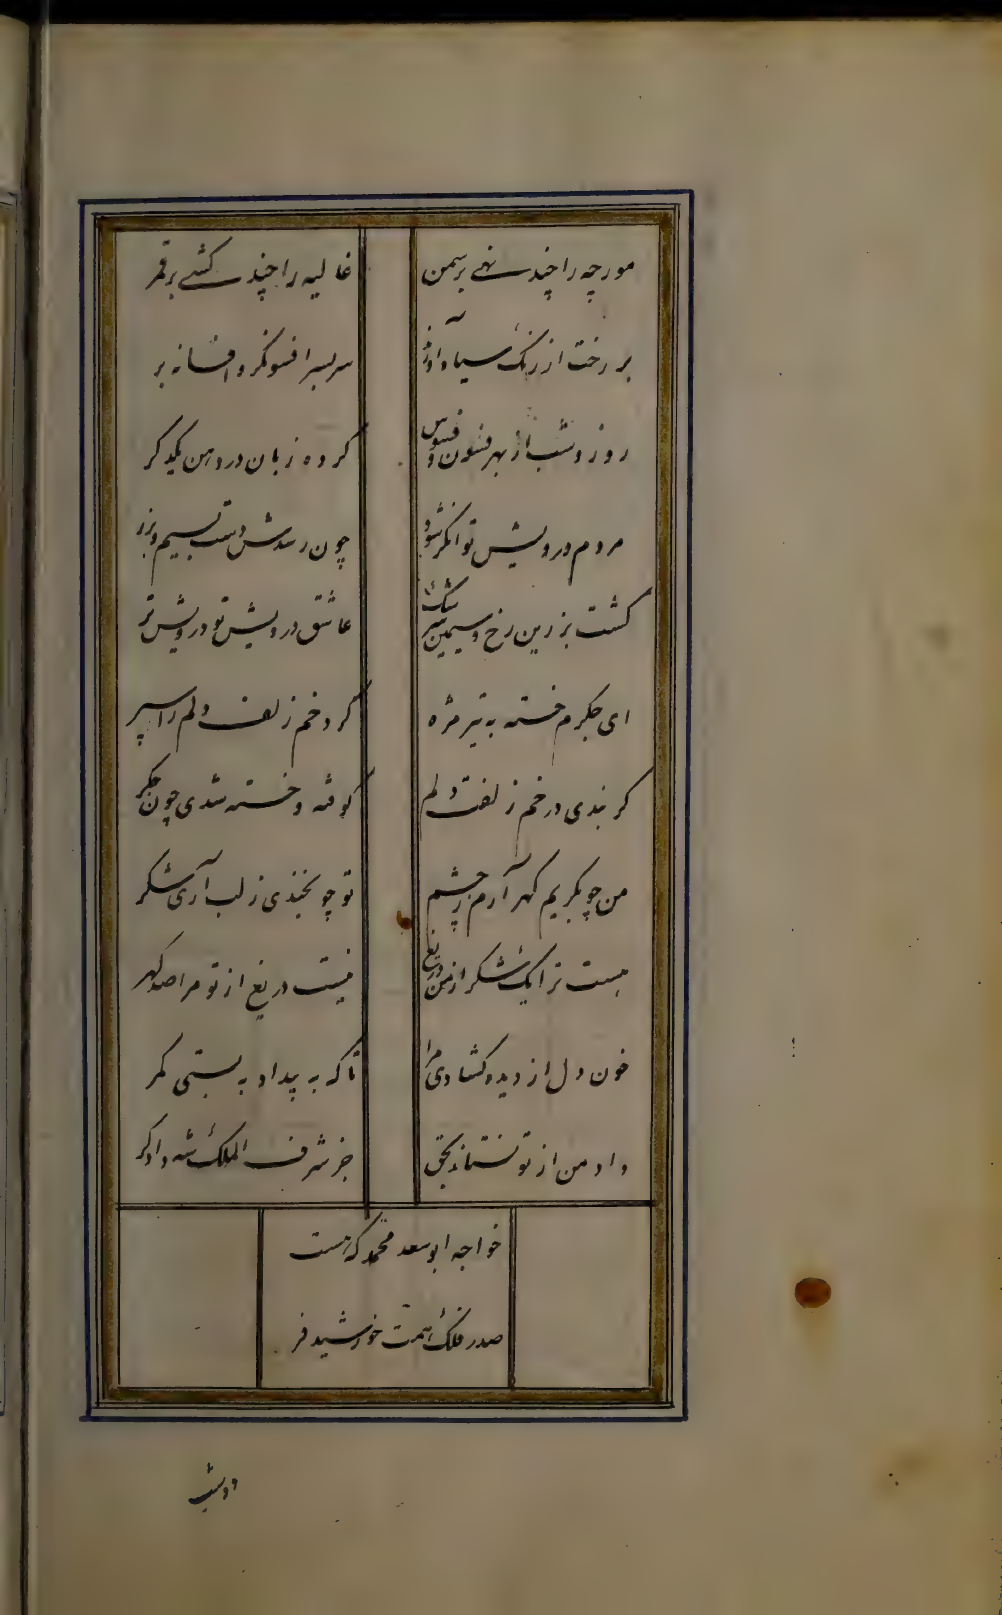 مورچه را چند نهی بر سمن
غالیه را چند کشی بر قمر
بر رخت از رنگ سیاه آورند
سربسر افسونگر و افسانه بر
روز و شب از بهر فسون و فسوس
کرده زبان در دهن یکدگر
مردم درویش توانگر شود
چون رسدش دست بسیم و بزر
گشت بزرین رخ و سیمین سرشک
عاشق درویش تو درویش تر
ای جگرم خسته به تیر مژه
کرد خم زلف دلم را سپر
گر نبدی در خم زلفت دلم
کوفته و خسته شدی چون جگر
من چو بگریم گهر آرم ز چشم
تو چو بخندی ز لب آری شکر
هست ترا یک شکر از من دریغ
نیست دریغ از تو مرا صد گهر
خون دل از دیده گشادی مرا
تا که به بیداد به بستی کمر
داد من از تو نستاند بحق
جز شرف الملک شه دادگر
خواجه ابوسعد محمد که هست
صدر فلک همت خورشید فر